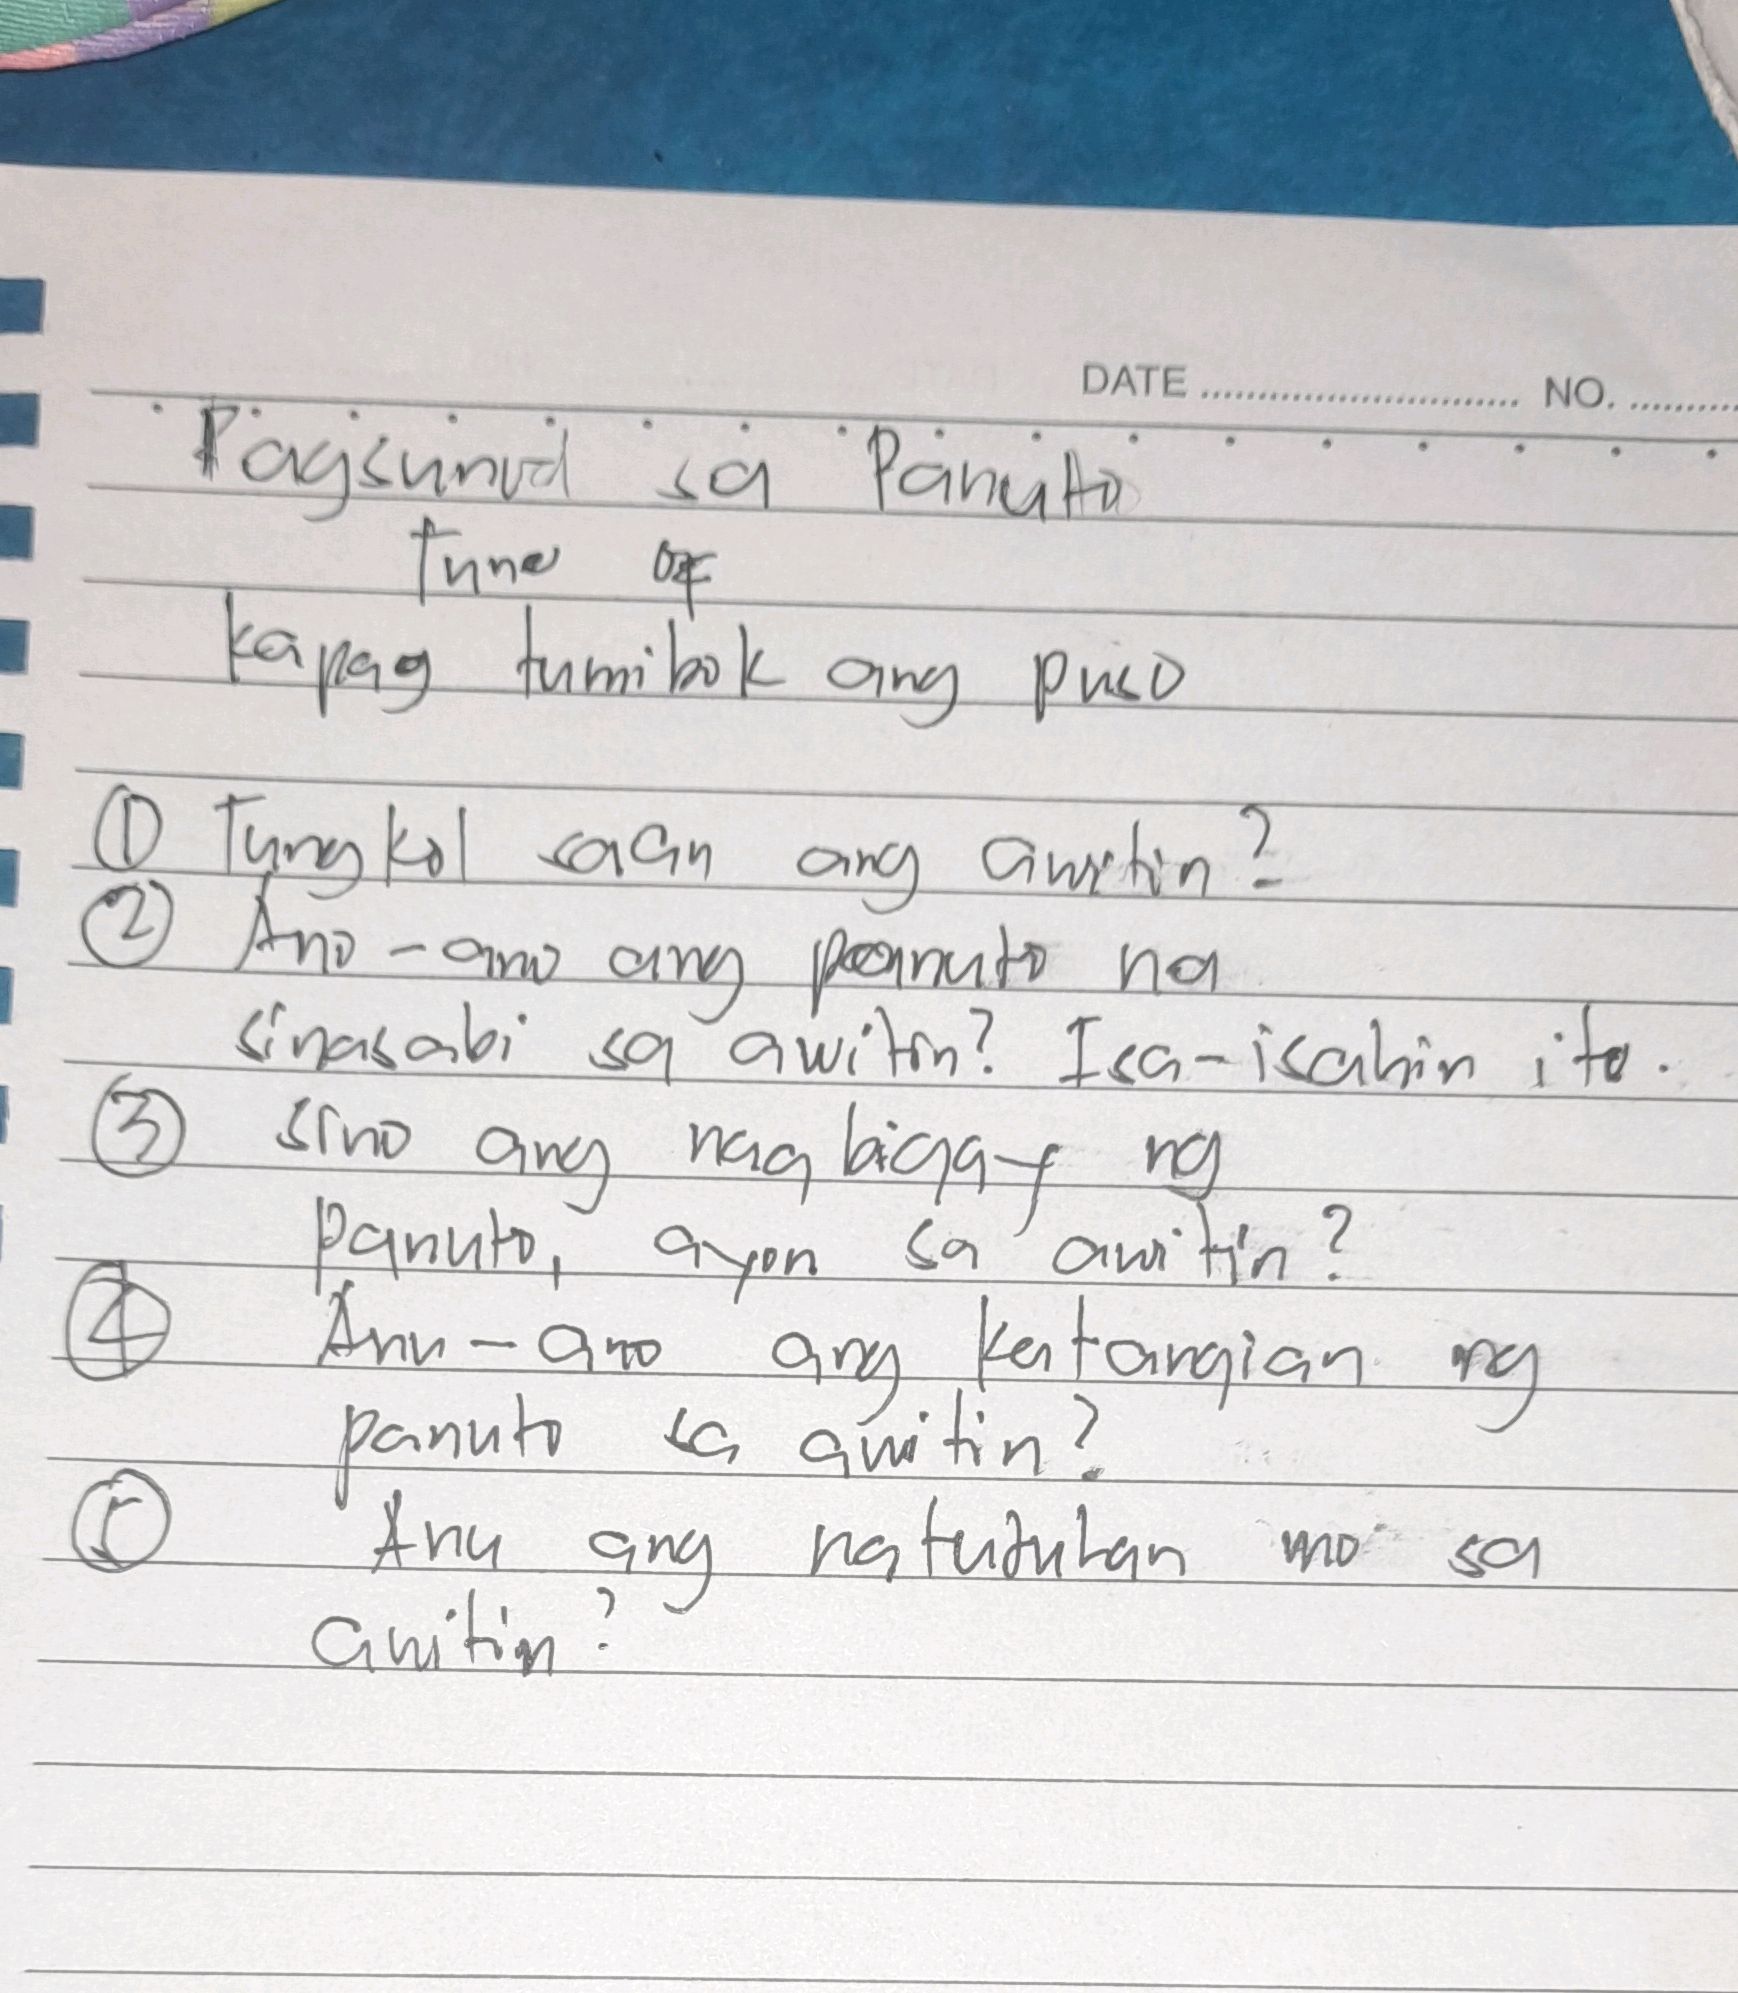 DATE ........................... NO. ..........
Pagsunod sa Panuto
Tune of
kapag tumibok ang puso
① Tungkol saan ang awitin?
② Ano-ano ang panuto na
sinasabi sa awitin? Isa-isahin ito.
③ Sino ang nagbigay ng
panuto, ayon sa awitin?
④ Anu-ano ang katangian ng
panuto sa awitin?
⑤ Anu ang natutuhan mo sa
awitin?